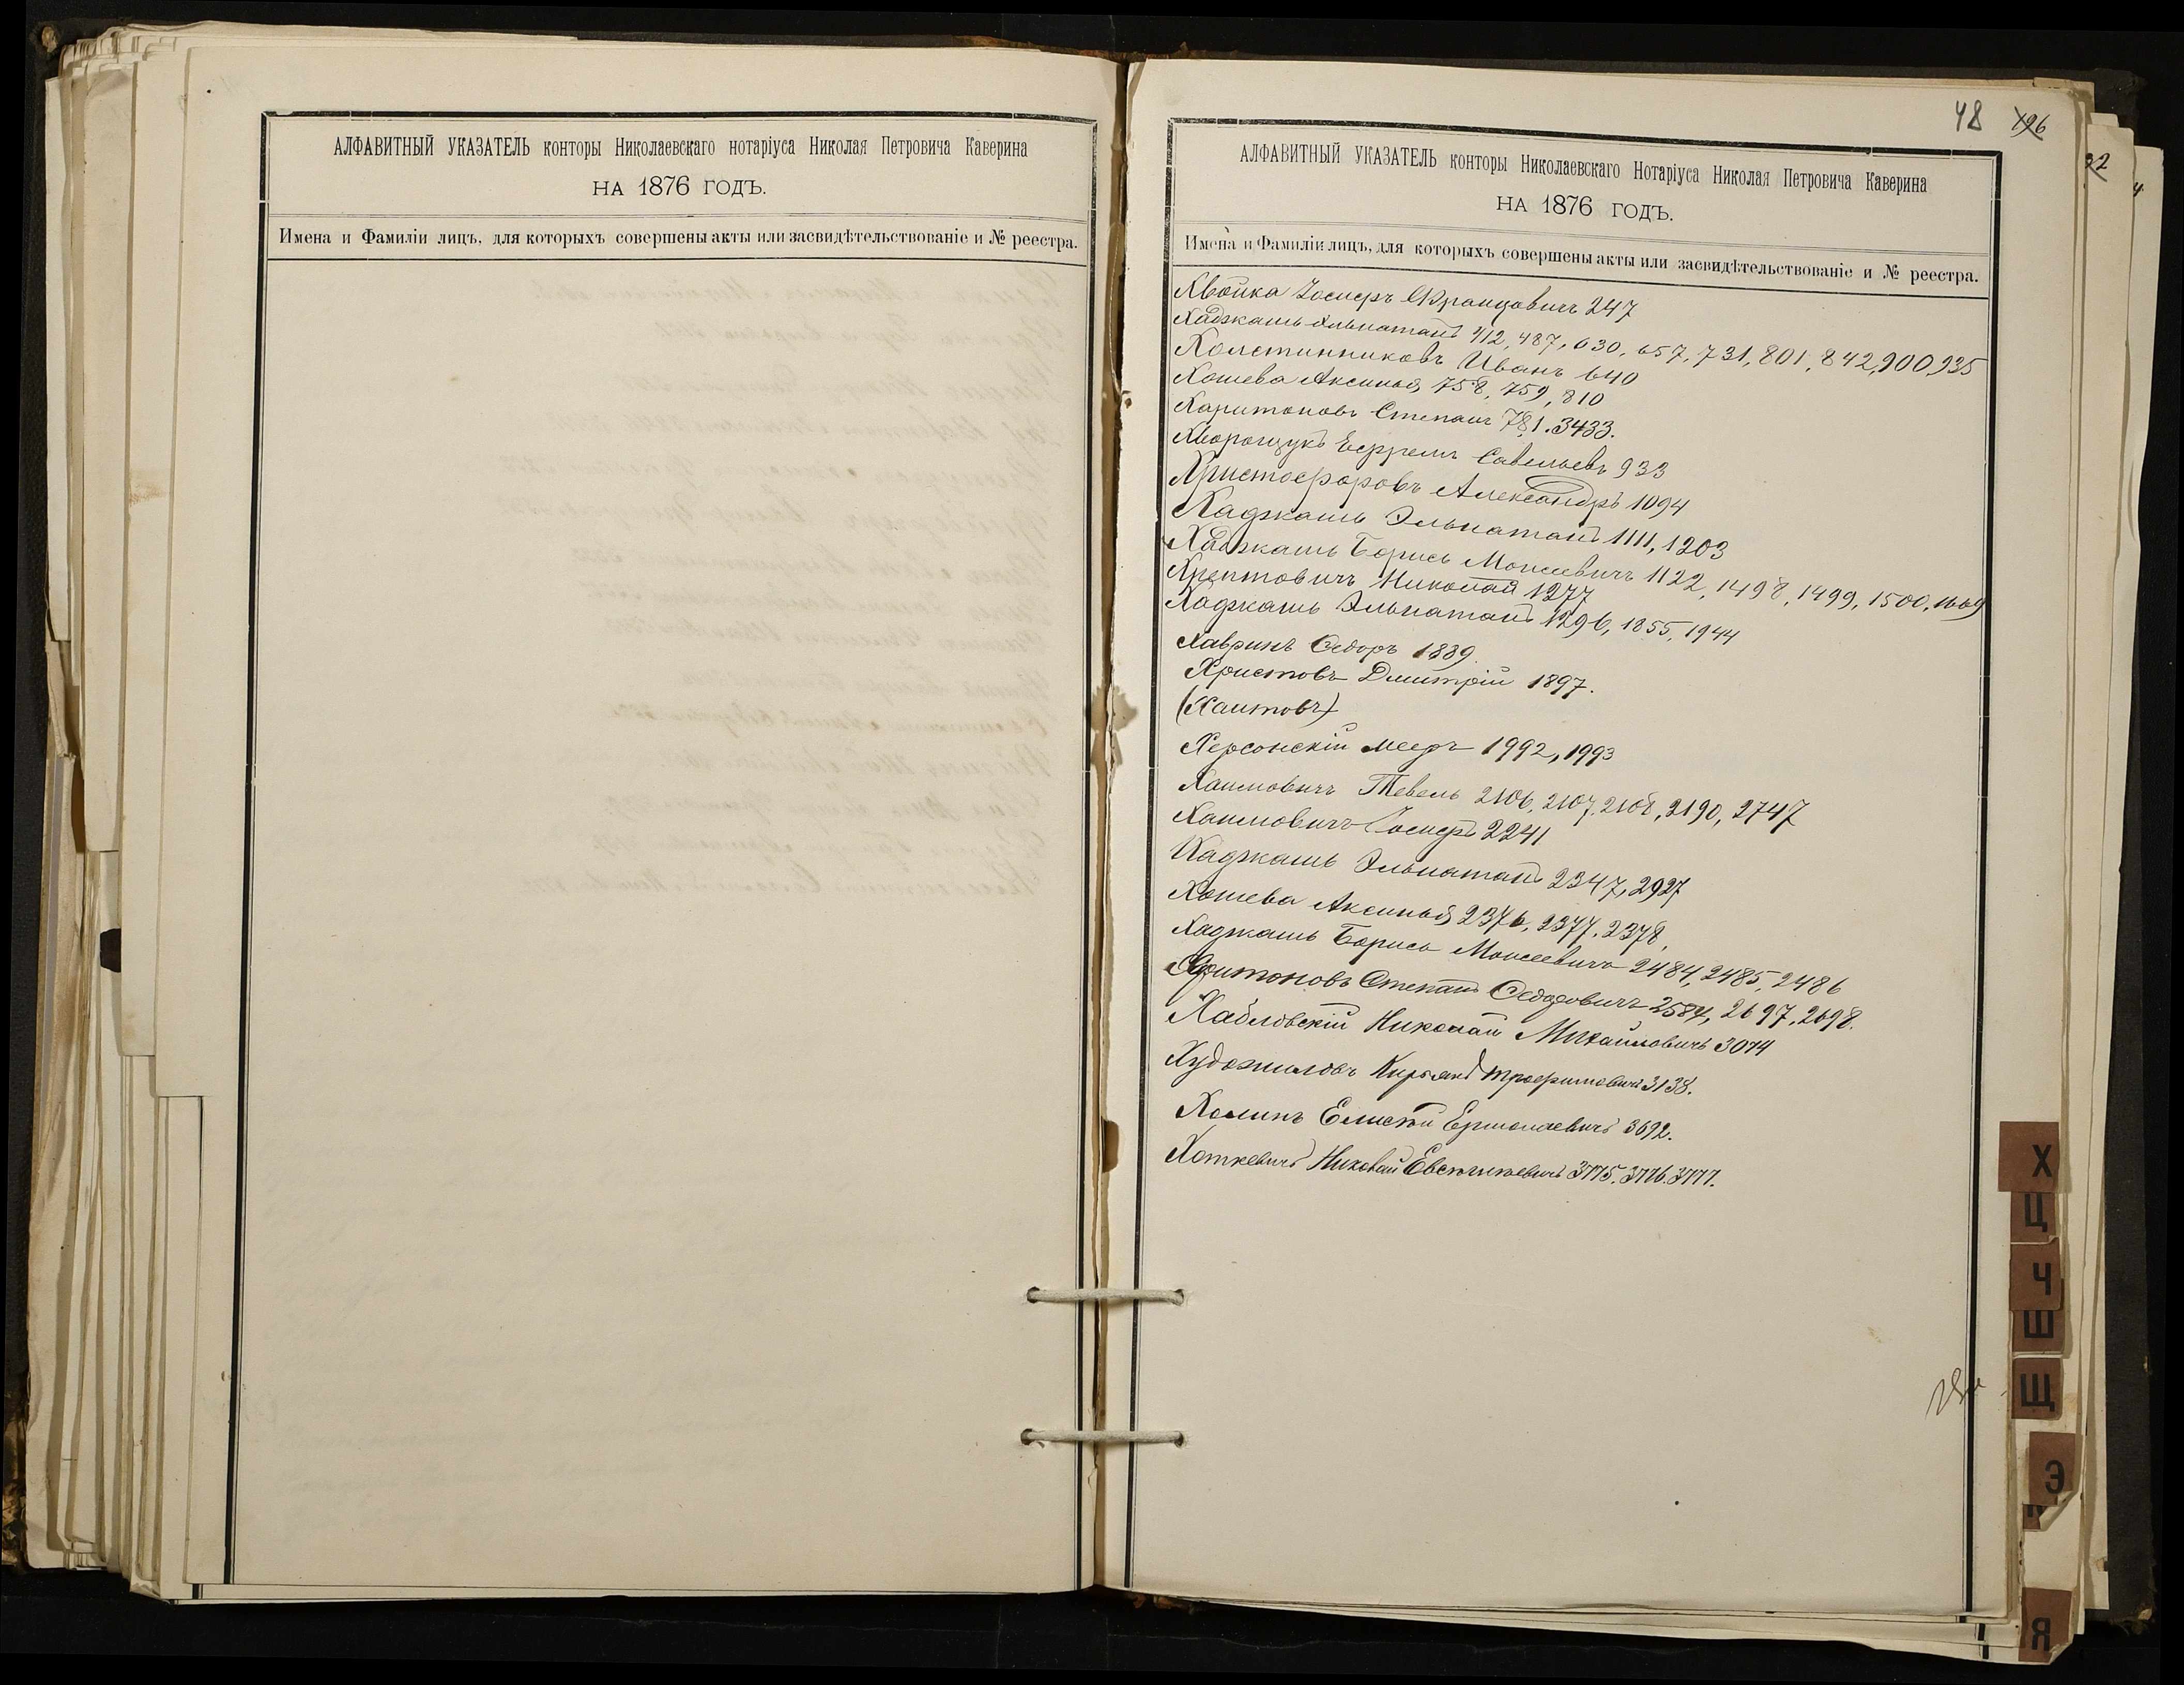 АЛФАВИТНЫЙ УКАЗАТЕЛЬ конторы Николаевскаго нотаріуса Николая Петровича Каверина
НА 1876 ГОДЪ.
Имена и Фамиліи лицъ, для которыхъ совершены акты или засвидѣтельствованіе и № реестра.
48 196
АЛФАВИТНЫЙ УКАЗАТЕЛЬ конторы Николаевскаго Нотаріуса Николая Петровича Каверина
НА 1876 ГОДЪ.
Имена и Фамиліи лицъ, для которыхъ совершены акты или засвидѣтельствованіе и № реестра.
Хвойка Іосифъ Францовичъ 247
Хаджашъ Эльнатанъ 412, 487, 630, 657, 731, 801, 842, 900, 935
Холстинниковъ Иванъ 640
Хошева Аксинья 758, 759, 810
Харитоновъ Степанъ 781. 3433.
Хворощукъ Ефремъ Савельевъ 933
Христофоровъ Александръ 1094
Хаджашъ Эльнатанъ 1111, 1203
Хаджашъ Борисъ Моисеевичъ 1122, 1498, 1499, 1500, 1669
Хрептовичъ Николай 1277
Хаджашъ Эльнатанъ 1296, 1855, 1944
Хавринъ Ѳедоръ 1889
Христовъ Дмитрій 1897.
(Хаитовъ)
Херсонскій Мееръ 1992, 1993
Хаимовичъ Тевель 2106, 2107, 2108, 2190, 2747
Хаимовичъ Іосифъ 2241
Хаджашъ Эльнатанъ 2347, 2927
Хошева Аксинья 2376, 2377, 2378,
Хаджашъ Борисъ Моисеевичъ 2484, 2485, 2486
Харитоновъ Степанъ Ѳедоровичъ 2584, 2697, 2698.
Хабловскій Николай Михайловичъ 3074
Художиловъ Кирьякъ Трофимовичъ 3138.
Холинъ Елисѣй Ермолаевичъ 3692.
Хоткевичъ Николай Евстигнѣевичъ 3775. 3776. 3777.
Х
Ц
Ч
Ш
Щ
Э
Я